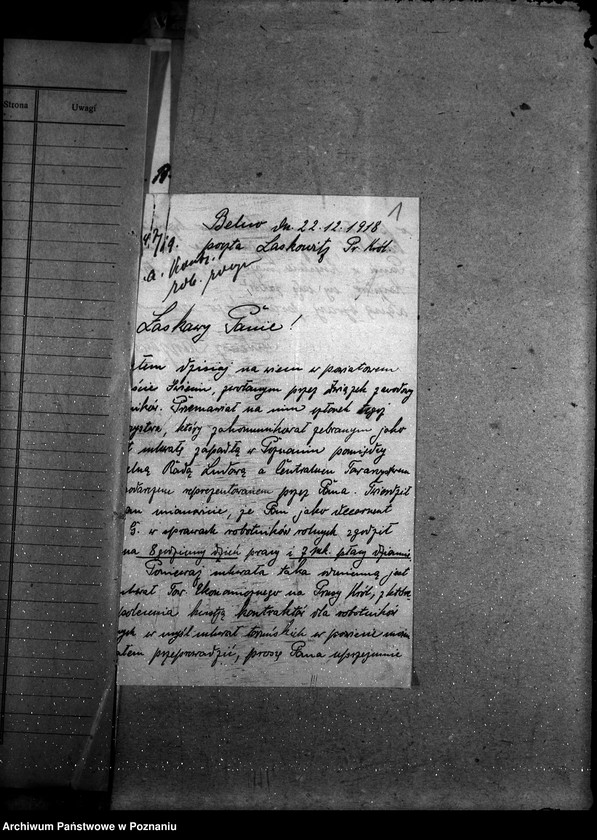 Strona
Uwagi
1
Belno dn. 22.12.1918
poczta Laskowitz Pr. Król.
Łaskawy Panie!
dzisiaj na wiecu w powiatowem
zwołanym przez Związek zawodowy
Przemawiał na nim członek
który zakomunikował zebranym jako
uchwały zapadłą w Poznaniu pomiędzy
Radą Ludową a Centralnem Towarzystwem
reprezentowanem przez Pana. Twierdził
mianowicie, że Pan jako decernent
w sprawach robotników rolnych zgodził
na 8 godzinny dzień pracy i 7 mk. płacy dziennie
Ponieważ uchwała taka sprzeczną jest
uchwał Tow. Ekonomicznego na Prusy Król, z
polecenia kontraktów dla robotników
w myśl uchwał toruńskich w powiecie
przeprowadzić, proszę Pana uprzejmie
Archiwum Państwowe w Poznaniu